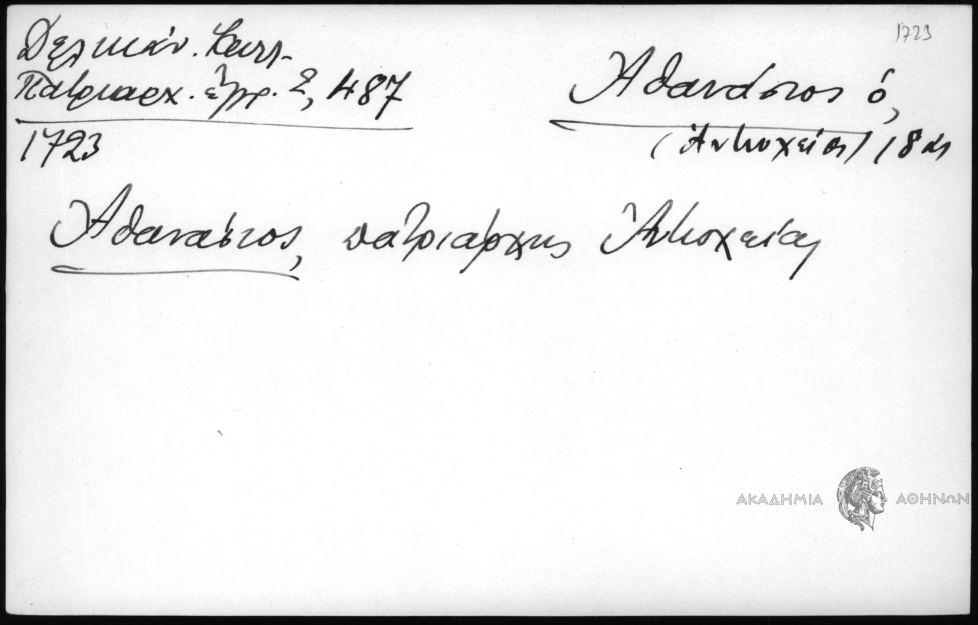 1723
Δελικάν. Καλλ.
Πατριαρχ. ἔγγρ. 2, 487
1723
Ἀθανάσιος ὁ,
(Ἀντιοχείας) 18 αι
Ἀθανάσιος, πατριάρχης Ἀντιοχείας
ΑΚΑΔΗΜΙΑ ΑΘΗΝΩΝ